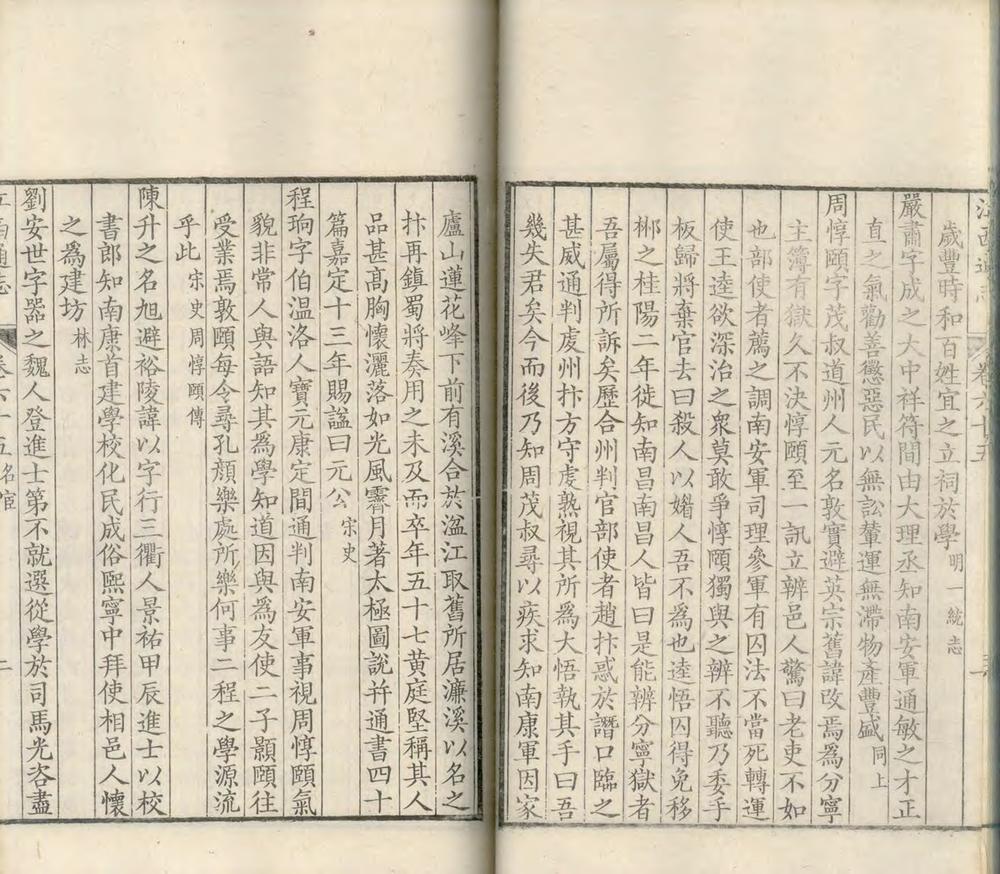 歲豐時和百姓宜之立祠於學 明一統志
嚴肅字成之大中祥符間由大理丞知南安軍通敏之才正
直之氣勸善懲惡民以無訟輦運無滯物產豐盛 同上
周惇頤字茂叔道州人元名敦實避英宗舊諱改焉為分寧
主簿有獄久不決惇頤至一訊立辨邑人驚曰老吏不如
也部使者薦之調南安軍司理參軍有囚法不當死轉運
使王逵欲深治之衆莫敢爭惇頤獨與之辨不聽乃委手
板歸將棄官去曰殺人以媚人吾不為也逵悟囚得免移
郴之桂陽二年徙知南昌南昌人皆曰是能辨分寧獄者
吾屬得所訴矣歷合州判官部使者趙抃惑於譖口臨之
甚威通判虔州抃方守虔熟視其所為大悟執其手曰吾
幾失君矣今而後乃知周茂叔尋以疾求知南康軍因家
廬山蓮花峰下前有溪合於湓江取舊所居濂溪以名之
抃再鎮蜀將奏用之未及而卒年五十七黃庭堅稱其人
品甚高胸懷灑落如光風霽月著太極圖說幷通書四十
篇嘉定十三年賜諡曰元公 宋史
程珦字伯温洛人寶元康定間通判南安軍事視周惇頤氣
貌非常人與語知其爲學知道因與爲友使二子顥頤往
受業焉敦頤每令尋孔顏樂處所樂何事二程之學源流
乎此 宋史周惇頤傳
陳升之名旭避裕陵諱以字行三衢人景祐甲辰進士以校
書郎知南康首建學校化民成俗熙寧中拜使相邑人懷
之爲建坊 林志
劉安世字器之魏人登進士第不就選從學於司馬光咨盡